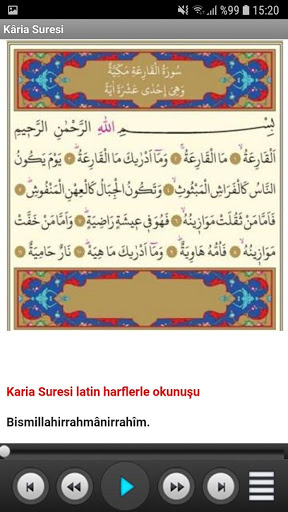 %99 15:20
Kâria Suresi
سُورَةُ الْقَارِعَةِ مَكِّيَّةٌ
وَهِيَ اِحْدٰى عَشْرَةَ اٰيَةً
بِسْــــمِ اللهِ الرَّحْمٰنِ الرَّحِيمِ
اَلْقَارِعَةُ ﴿١﴾ مَا الْقَارِعَةُ ﴿٢﴾ وَمَٓا اَدْرٰيكَ مَا الْقَارِعَةُ ﴿٣﴾ يَوْمَ يَكُونُ
النَّاسُ كَالْفَرَاشِ الْمَبْثُوثِ ﴿٤﴾ وَتَكُونُ الْجِبَالُ كَالْعِهْنِ الْمَنْفُوشِ ﴿٥﴾
فَاَمَّا مَنْ ثَقُلَتْ مَوَازِينُهُ ﴿٦﴾ فَهُوَ فِي عِيشَةٍ رَاضِيَةٍ ﴿٧﴾ وَاَمَّا مَنْ خَفَّتْ
مَوَازِينُهُ ﴿٨﴾ فَاُمُّهُ هَاوِيَةٌ ﴿٩﴾ وَمَٓا اَدْرٰيكَ مَا هِيَهْ ﴿١٠﴾ نَارٌ حَامِيَةٌ ﴿١١﴾
Karia Suresi latin harflerle okunuşu
Bismillahirrahmânirrahîm.